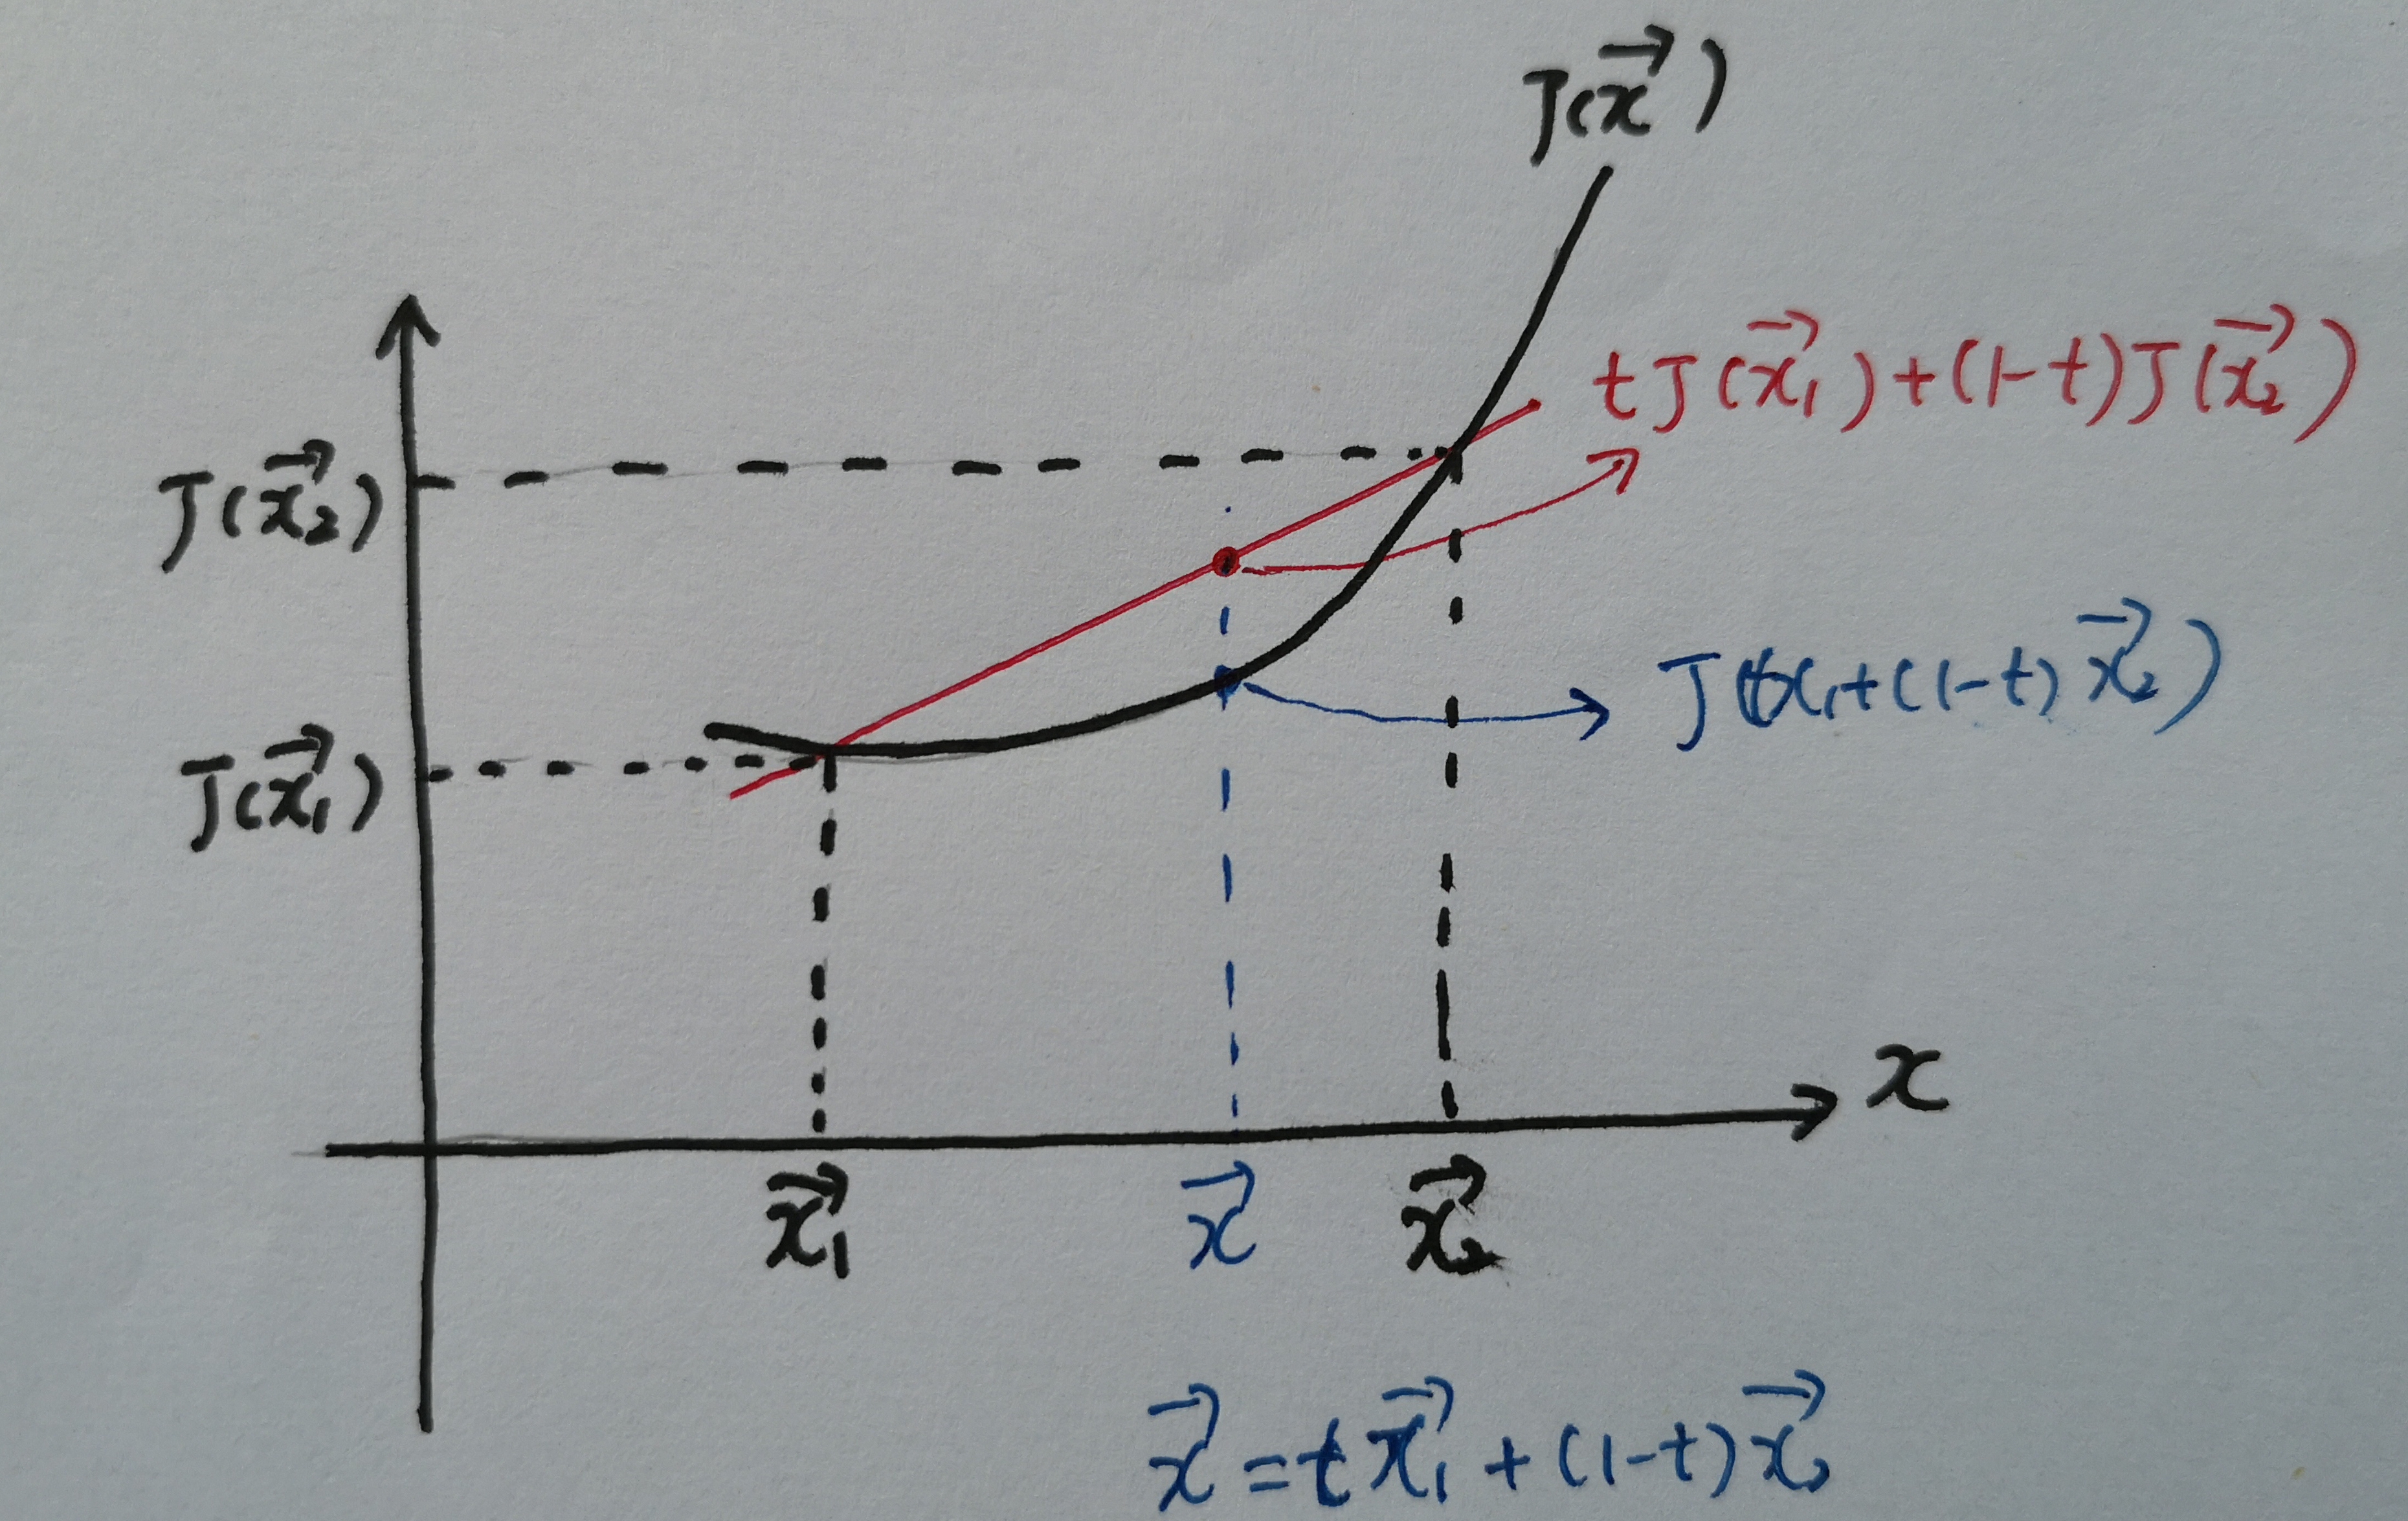 J(x⃗)
tJ(x⃗₁)+(1-t)J(x⃗₂)
J(x⃗₂)
J(tx₁+(1-t)x⃗₂)
J(x⃗₁)
x
x⃗₁ x⃗ x⃗₂
x⃗=tx⃗₁+(1-t)x⃗₂